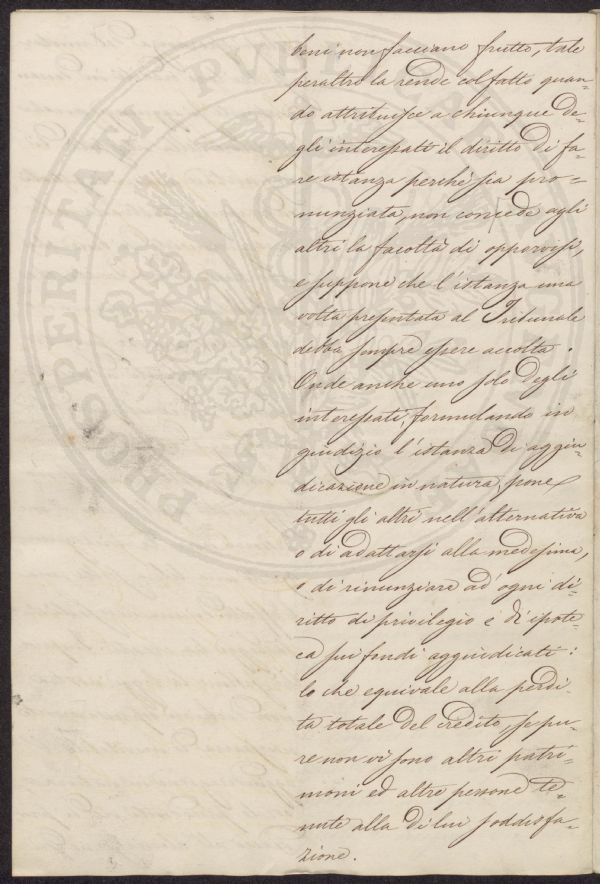 beni non facciano frutto, tale
peraltro la rende col fatto quan=
do attribuisce a chiunque de=
gli interessati il diritto di fa=
re istanza perchè sia pro=
nunziata, non concede agli
altri la facoltà di opporvisi,
e suppone che l'istanza una
volta presentata al Tribunale
debba sempre essere accolta.
Onde anche uno solo degli
interessati, formulando in
giudizio l'istanza di aggiu=
dicazione in natura, pone
tutti gli altri nell'alternativa
o di adattarsi alla medesima,
o di rinunziare ad ogni di=
ritto di privilegio e di ipote=
ca sui fondi aggiudicati:
lo che equivale alla perdi=
ta totale del credito, se pu=
re non vi sono altri patri=
moni ed altre persone te=
nute alla di lui soddisfa=
zione.
PROSPERITATI PUBL